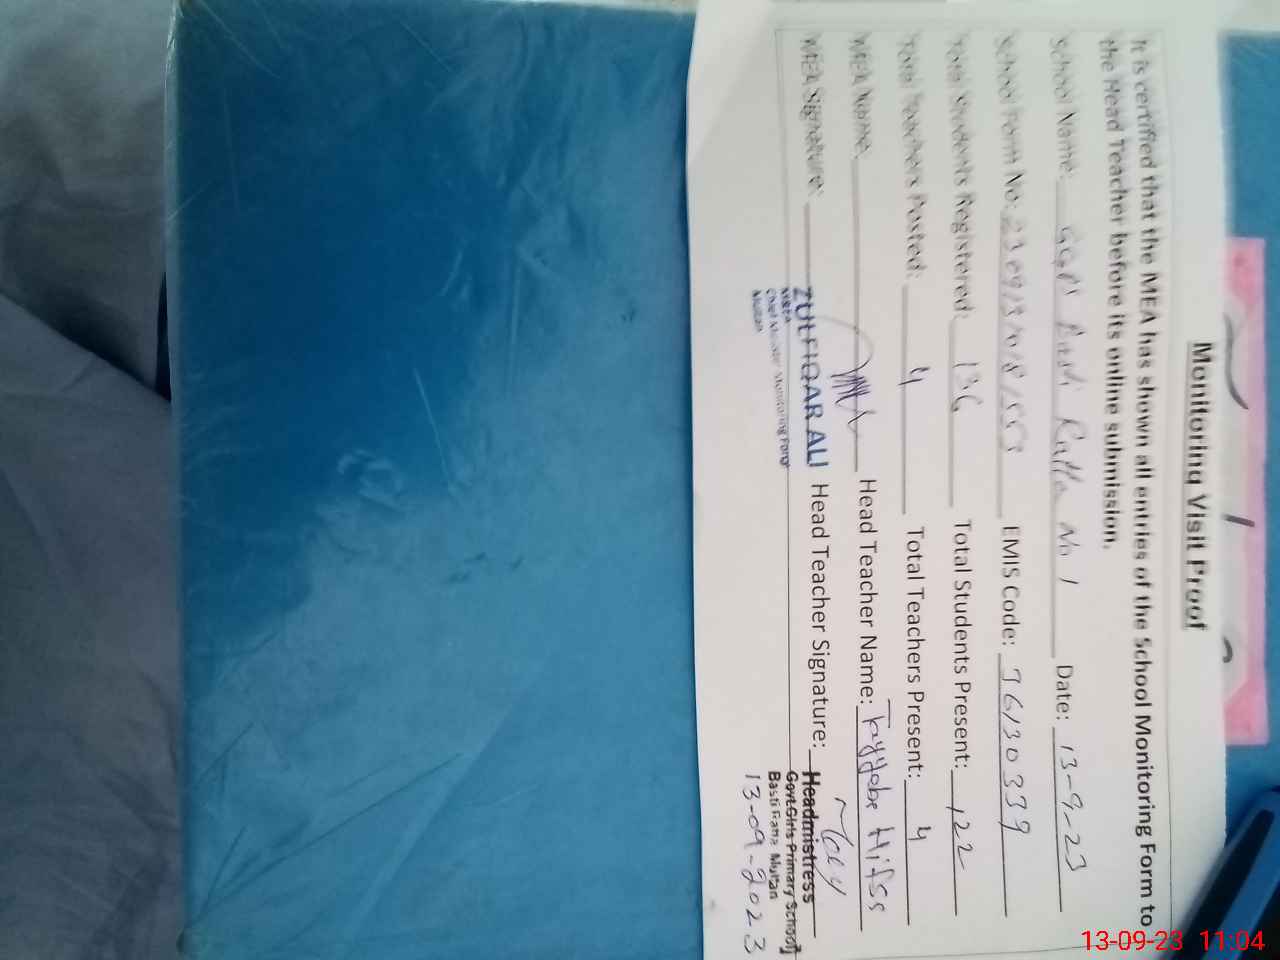 Monitoring Visit Proof
It is certified that the MEA has shown all entries of the School Monitoring Form to
the Head Teacher before its online submission.
School Name: GGPS Basti No 1 Date: 13-9-23
School Form No: EMIS Code: 36130339
Total Students Registered: 136 Total Students Present: 122
Total Teachers Posted: 4 Total Teachers Present: 4
MEA Name: Head Teacher Name: Tayyeba
MEA Signature: Head Teacher Signature:
ZULFIQAR ALI
MEA
Chief Minister Monitoring Force
Multan
Headmistress
Govt.Girls Primary School
Basti Multan
13-09-2023
13-09-23 11:04